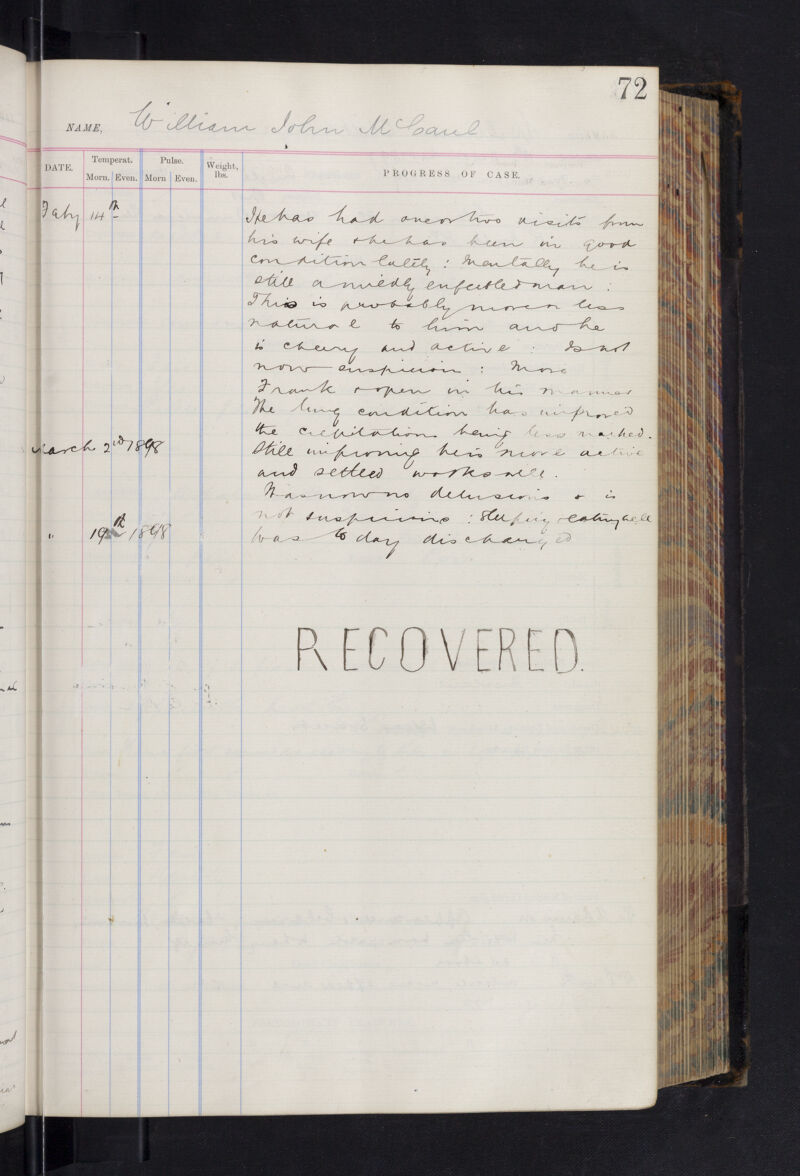 72
NAME, William John McCaul
DATE. Temperat. Pulse. Weight, lbs. PROGRESS OF CASE.
Morn. Even. Morn Even.
Faby 14th He has had one or two visits from
his wife & he has been in good
condition lately : Mentally he is
still a mildly enfeebled man :
This is probably more or less
natural to him and he
is cheery and active : Is not
now suspicious : More
Frank & open in his manner
The lung condition has improved
the crepitations being less marked.
March 2nd 1898 Still improving he is more active
and settled works well.
Has now no delusions & is
not suspicious : Sleeping & eating well
" 19th 1898 Was to day discharged
RECOVERED.